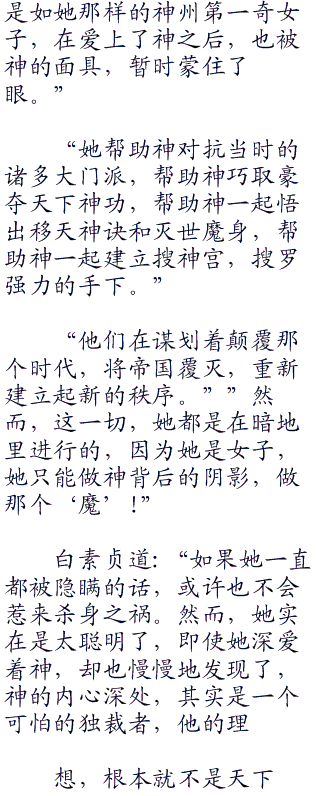 是如她那样的神州第一奇女
子，在爱上了神之后，也被
神的面具，暂时蒙住了
眼。”
“她帮助神对抗当时的
诸多大门派，帮助神巧取豪
夺天下神功，帮助神一起悟
出移天神诀和灭世魔身，帮
助神一起建立搜神宫，搜罗
强力的手下。”
“他们在谋划着颠覆那
个时代，将帝国覆灭，重新
建立起新的秩序。””然
而，这一切，她都是在暗地
里进行的，因为她是女子，
她只能做神背后的阴影，做
那个‘魔’！”
白素贞道：“如果她一直
都被隐瞒的话，或许也不会
惹来杀身之祸。然而，她实
在是太聪明了，即使她深爱
着神，却也慢慢地发现了，
神的内心深处，其实是一个
可怕的独裁者，他的理
想，根本就不是天下